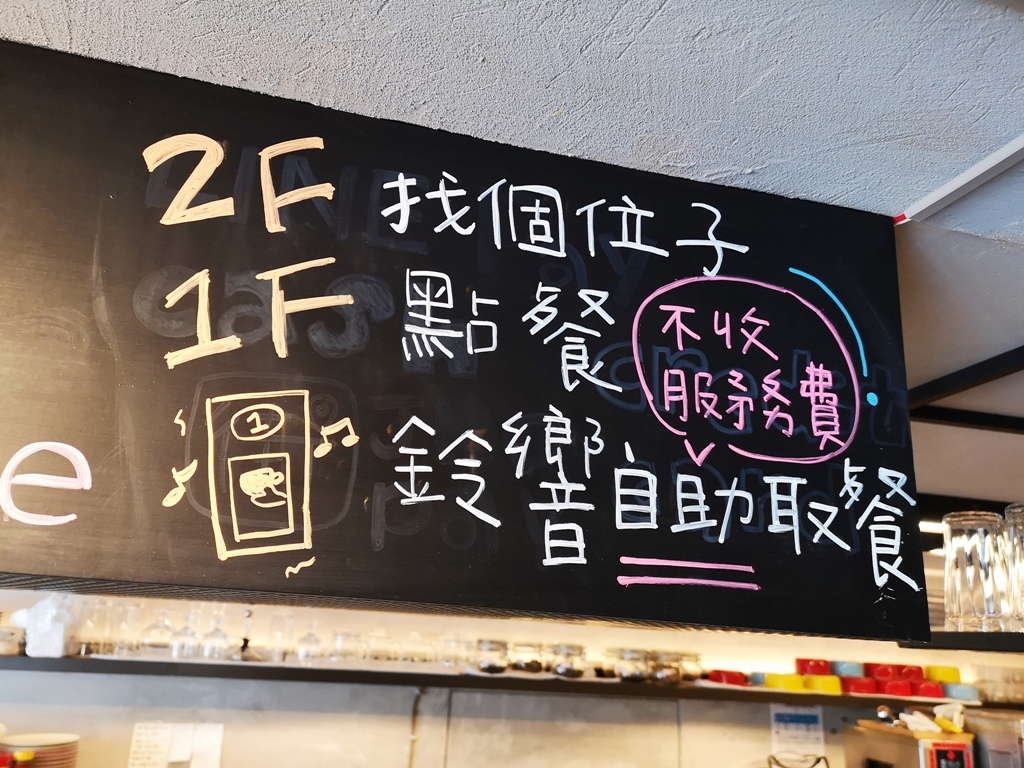 2F 找個位子
1F 點餐
不收
服務費
1
鈴響自助取餐
e